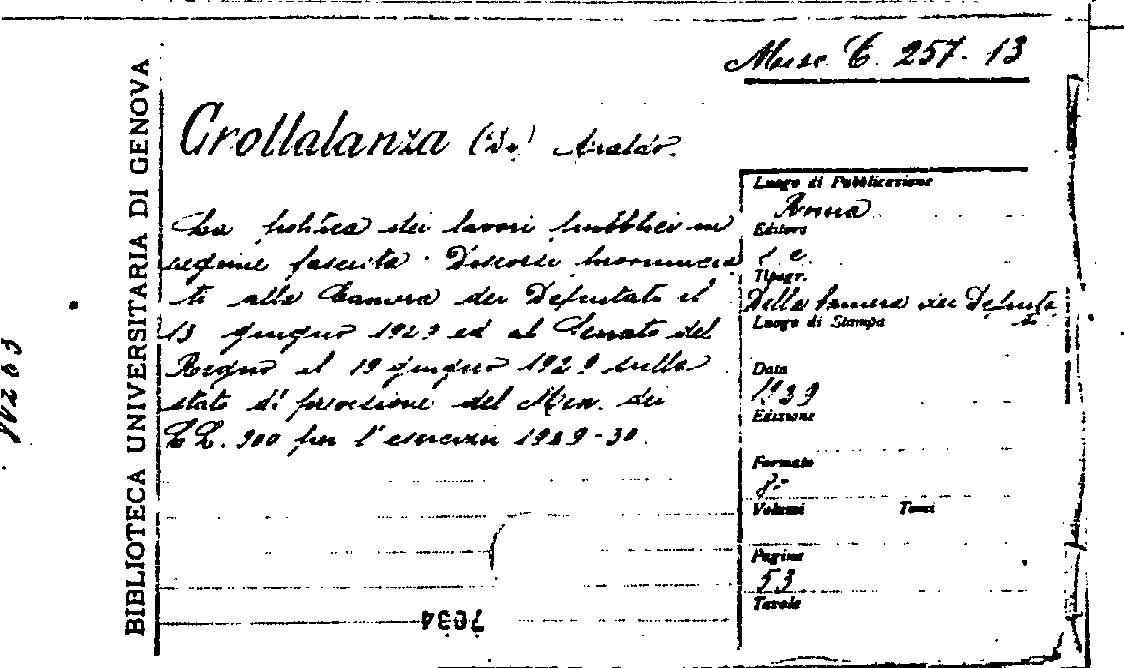 Misc. C. 257. 13
BIBLIOTECA UNIVERSITARIA DI GENOVA
Crollalanza (Di) Araldo.
La politica dei lavori pubblici nel
regime fascista. Discorsi pronuncia
ti alla Camera dei Deputati il
13 giugno 1929 ed al Senato del
Regno il 19 giugno 1929 sullo
stato di previsione del Min. dei
LL. PP. per l'esercizio 1929-30.
Luogo di Pubblicazione
Roma
Editore
Tipogr.
Della Camera dei Deputa
ti
Luogo di Stampa
Data
1929
Edizione
Formato
8º
Volumi Tomi
Pagine
53
Tavole
7034